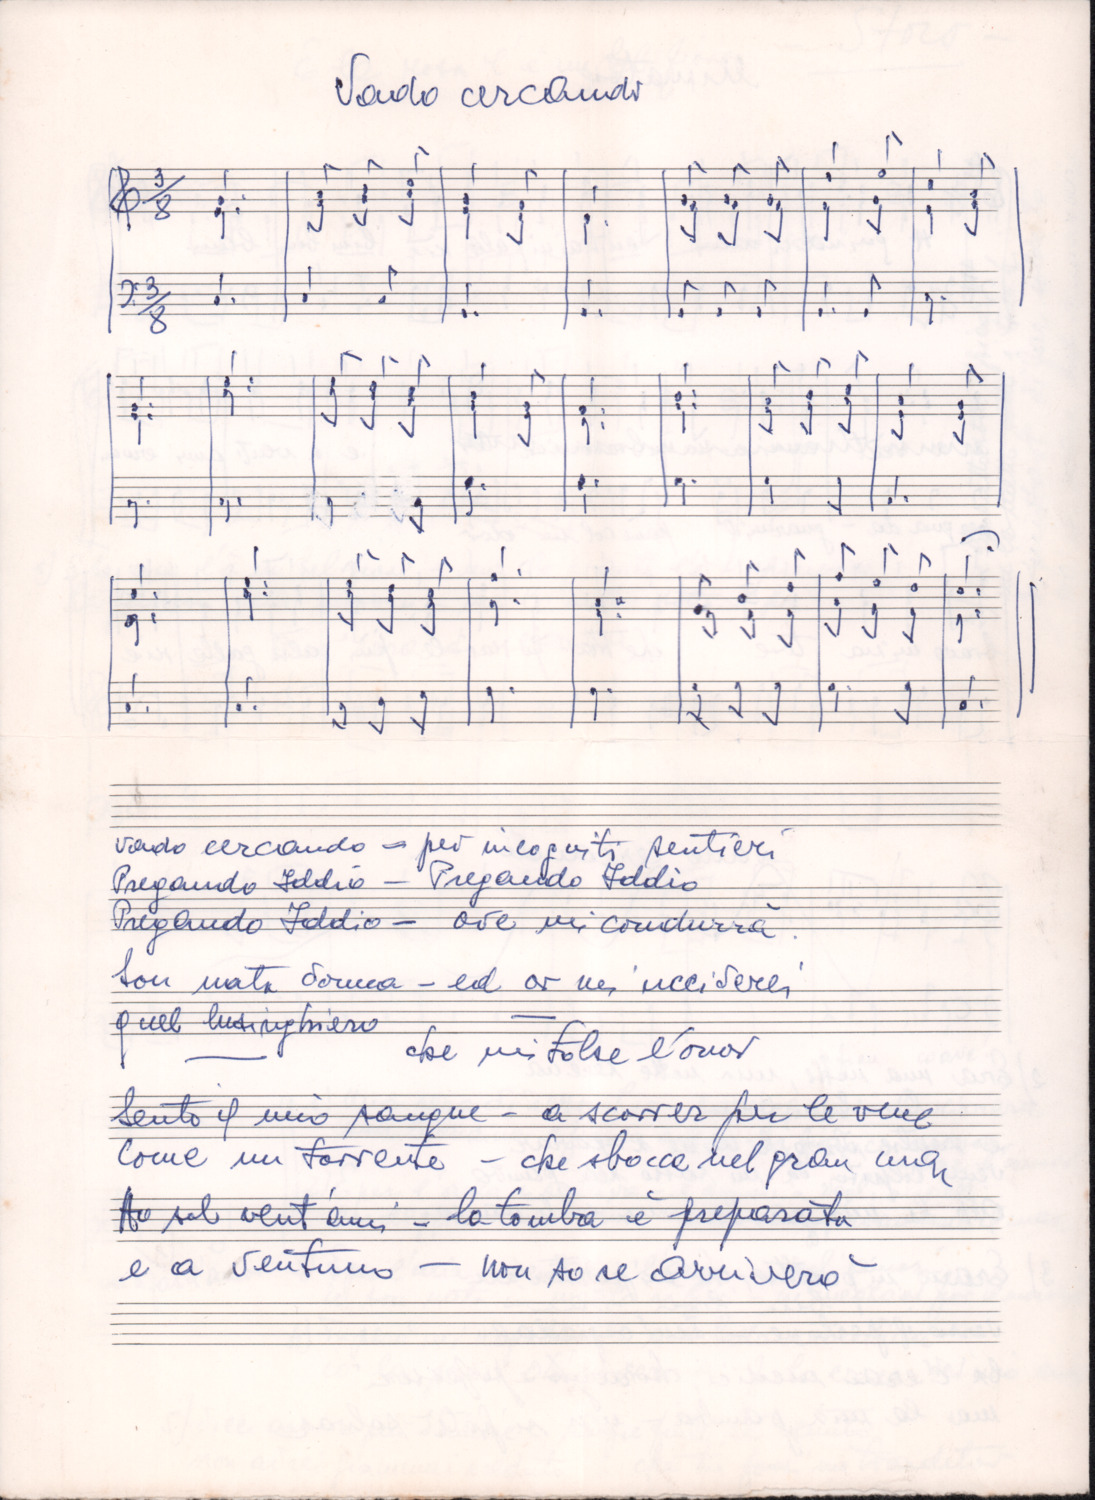 Vado cercando
3/8
3/8
vado cercando – per incogniti sentieri
Pregando Iddio – Pregando Iddio
Pregando Iddio – ove mi condurrà.
Son nata donna – ed or mi ucciderei
quel lusinghiero
che mi tolse l'onor
Sento il mio sangue – a scorrer per le vene
Come un torrente – che sbocca nel gran mar
Ho sol vent'anni – la tomba è preparata
e a ventuno – non so se arriverò